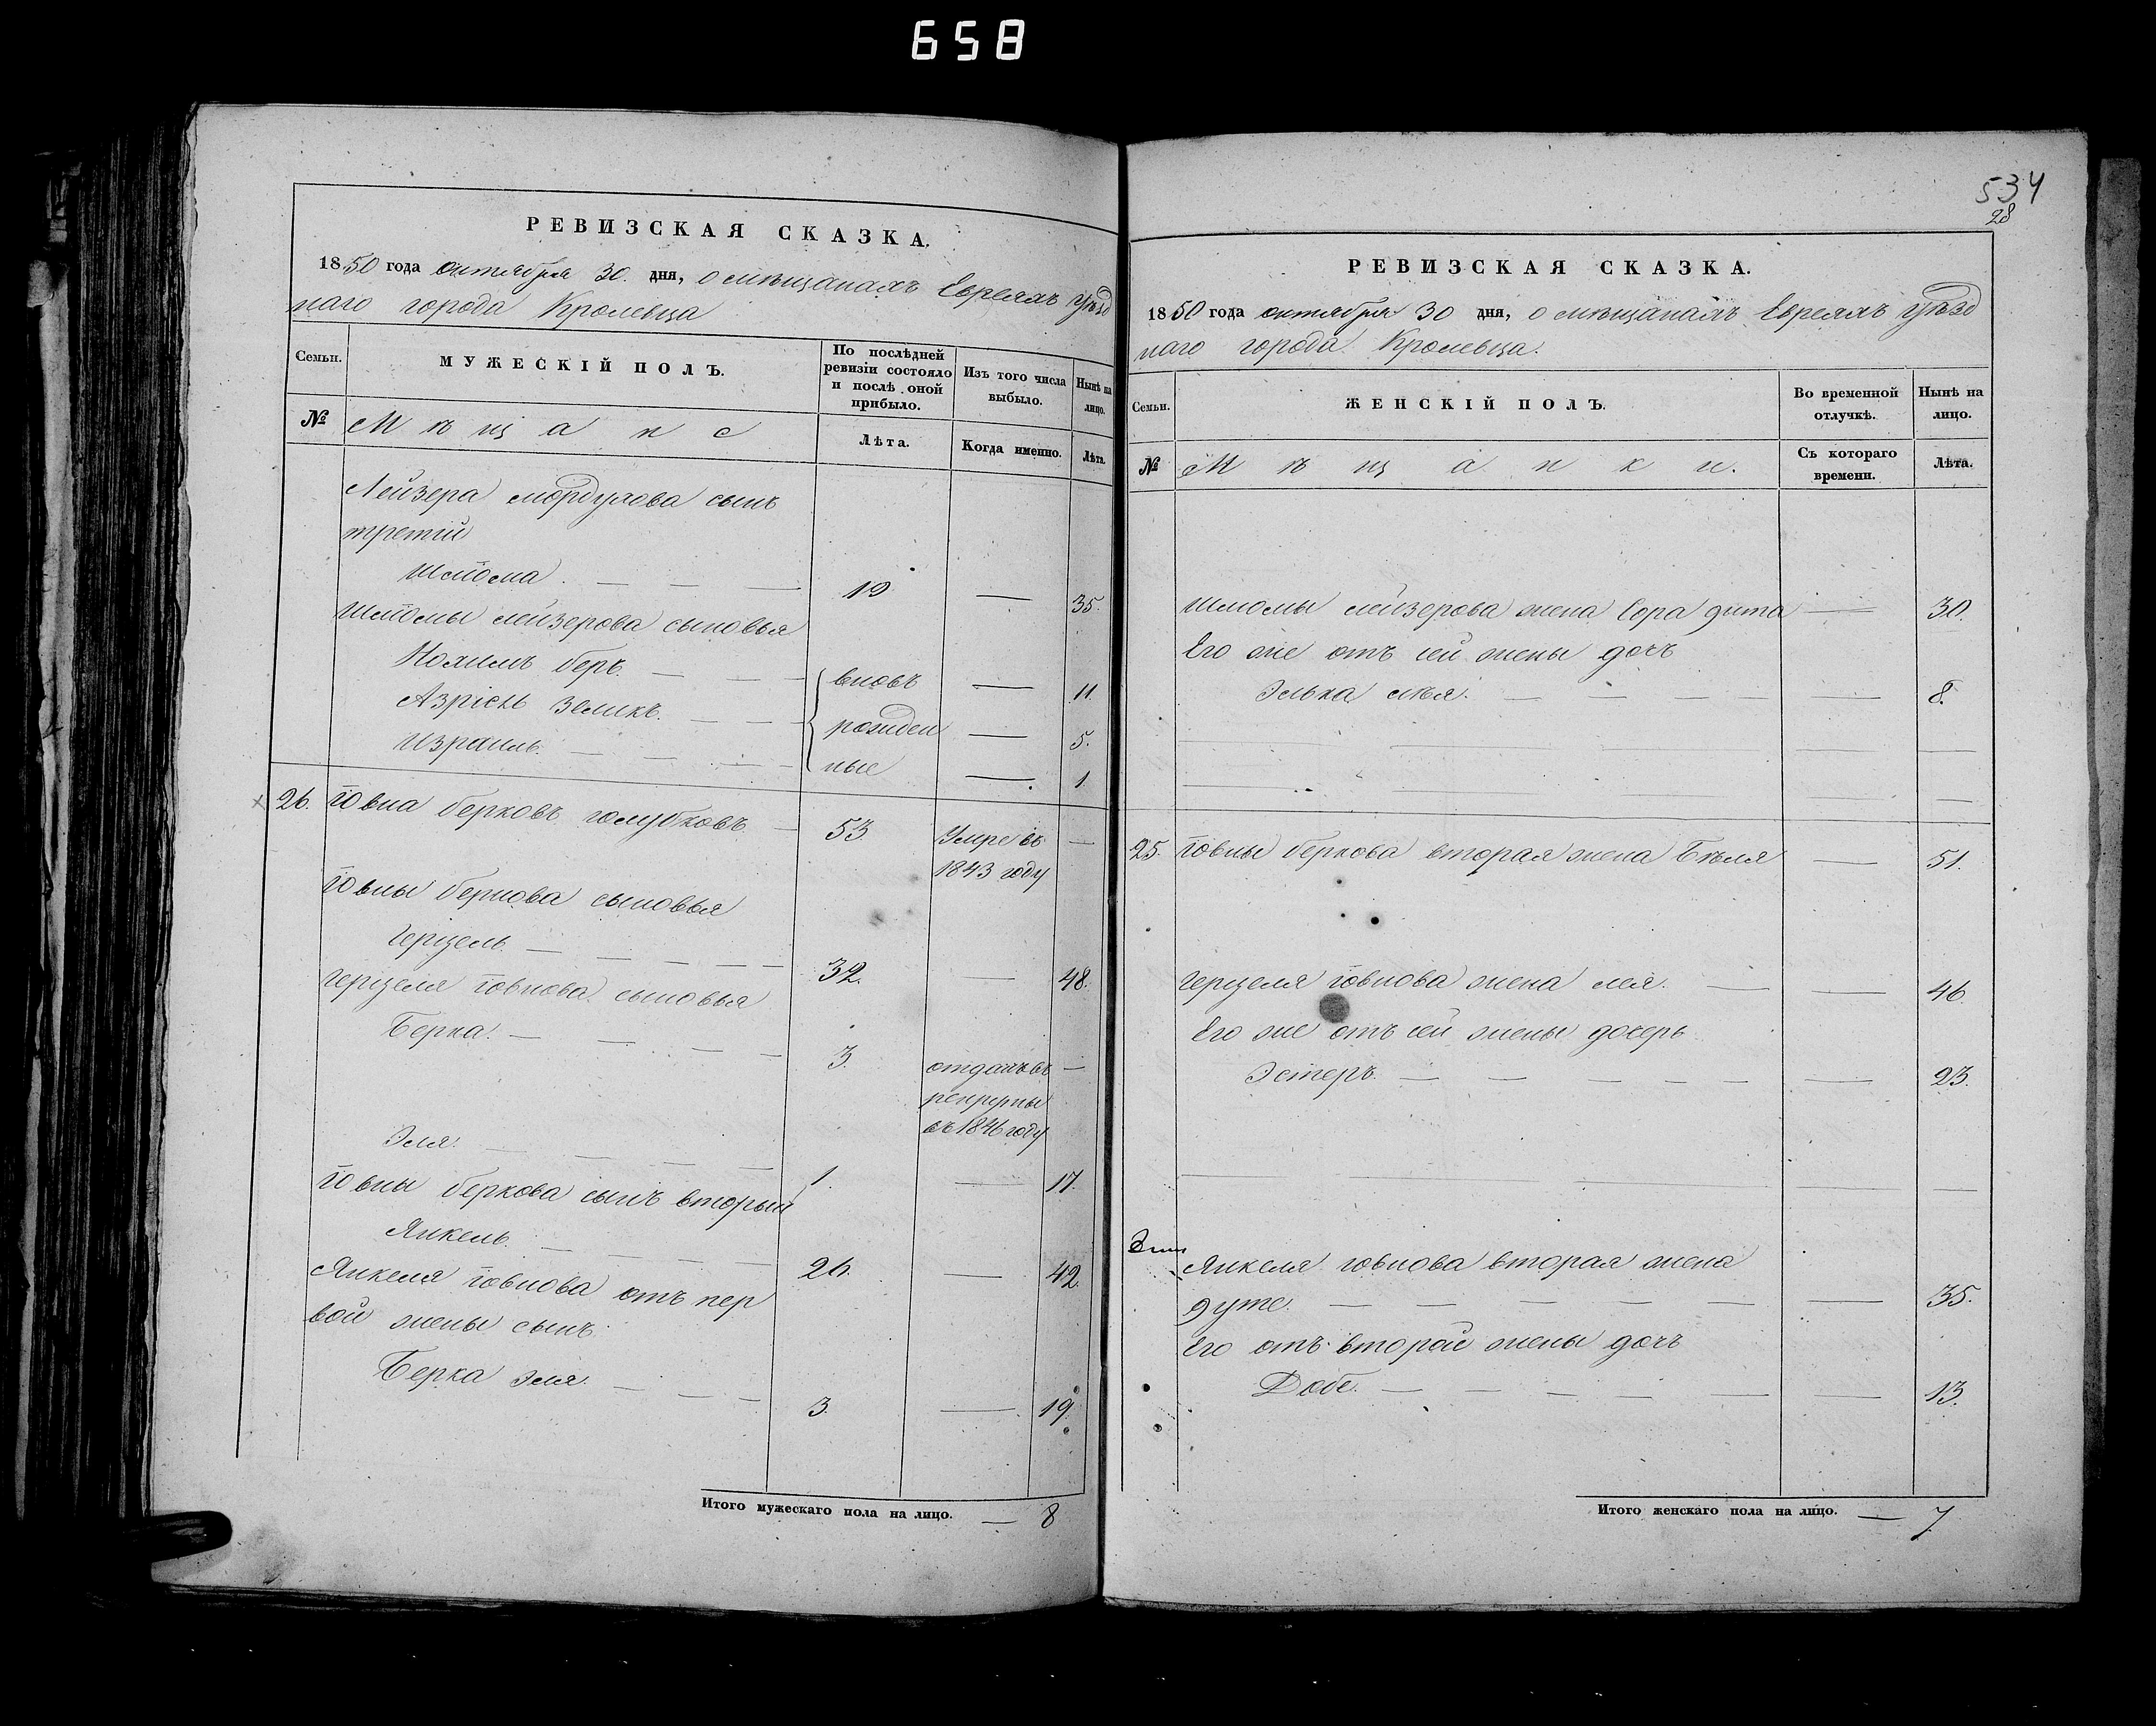 658
РЕВИЗСКАЯ СКАЗКА.
1850 года октября 30. дня, о мѣщанахъ Евреяхъ уѣзд
наго города Кролевца
Семьи.
МУЖЕСКІЙ ПОЛЪ.
По послѣдней ревизіи состояло и послѣ оной прибыло.
Изъ того числа выбыло.
Нынѣ на лицо.
№
Мѣщане
Лѣта.
Когда именно.
Лѣта.
Лейзера мордухова сынъ
третій
Шліома. — — — 19 — 35.
Шліомы лейзерова сыновья
Нохимъ беръ. — — вновь — 11.
Азріель зеликъ. — — рожден — 5.
Израиль. — — — ные — 1.
26. Іовна берковъ голубковъ — 53. Умре въ —
1843 году
Іовны беркова сыновья
Герцель. — — — — — 32. — 48.
Герцеля іовнова сыновья
Берка. — — — — 3. отданъ въ —
рекруты
въ 1846 году
Эля. — — — — 1. — 17.
Іовны беркова сынъ вторый
Янкель. — — — — 26. — 42.
Янкеля іовнова отъ пер
вой жены сынъ.
Берка эля. — — — 3. — 19.
Итого мужескаго пола на лицо. — 8
534
28
РЕВИЗСКАЯ СКАЗКА.
1850 года октября 30 дня, о мѣщанахъ Евреяхъ уѣзд
наго города Кролевца.
Семьи.
ЖЕНСКІЙ ПОЛЪ.
Во временной отлучкѣ.
Нынѣ на лицо.
№
Мѣщанки.
Съ котораго времени.
Лѣта.
Шліомы лейзерова жена Сора гита — 30.
Его же отъ сей жены дочь
Элька лѣя. — — — — 8.
25. Іовны беркова вторая жена Бѣля — 51.
Герцеля іовнова жена лея. — — 46.
Его же отъ сей жены дочерь
Эстеръ. — — — — — — 23.
Янкеля іовнова вторая жена
гуте. — — — — — — 35.
Его отъ второй жены дочь
Добе. — — — — — — 13.
Итого женскаго пола на лицо. — 7